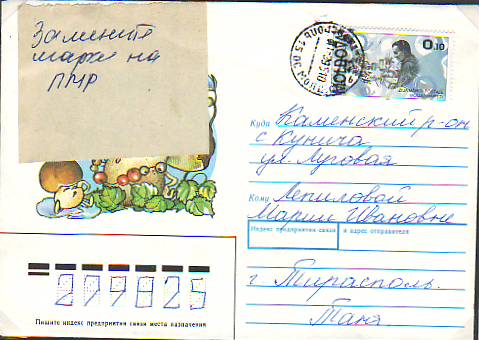 Замените
марки на
ПМР
0.10
Куда Каменский р-он
с Кунича
ул. Луговая
Кому Лепиловой
Марии Ивановне
Индекс предприятия связи и адрес отправителя
г Тирасполь.
Таня.
Пишите индекс предприятия связи места назначения